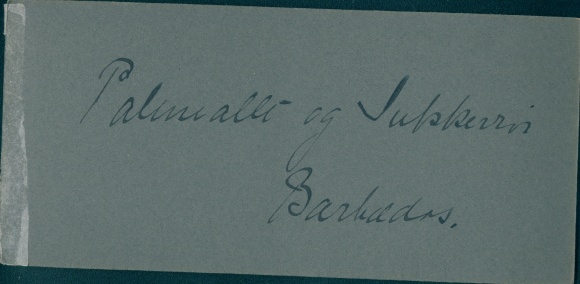 Palmeallé og Sukkerrør
Barbados.